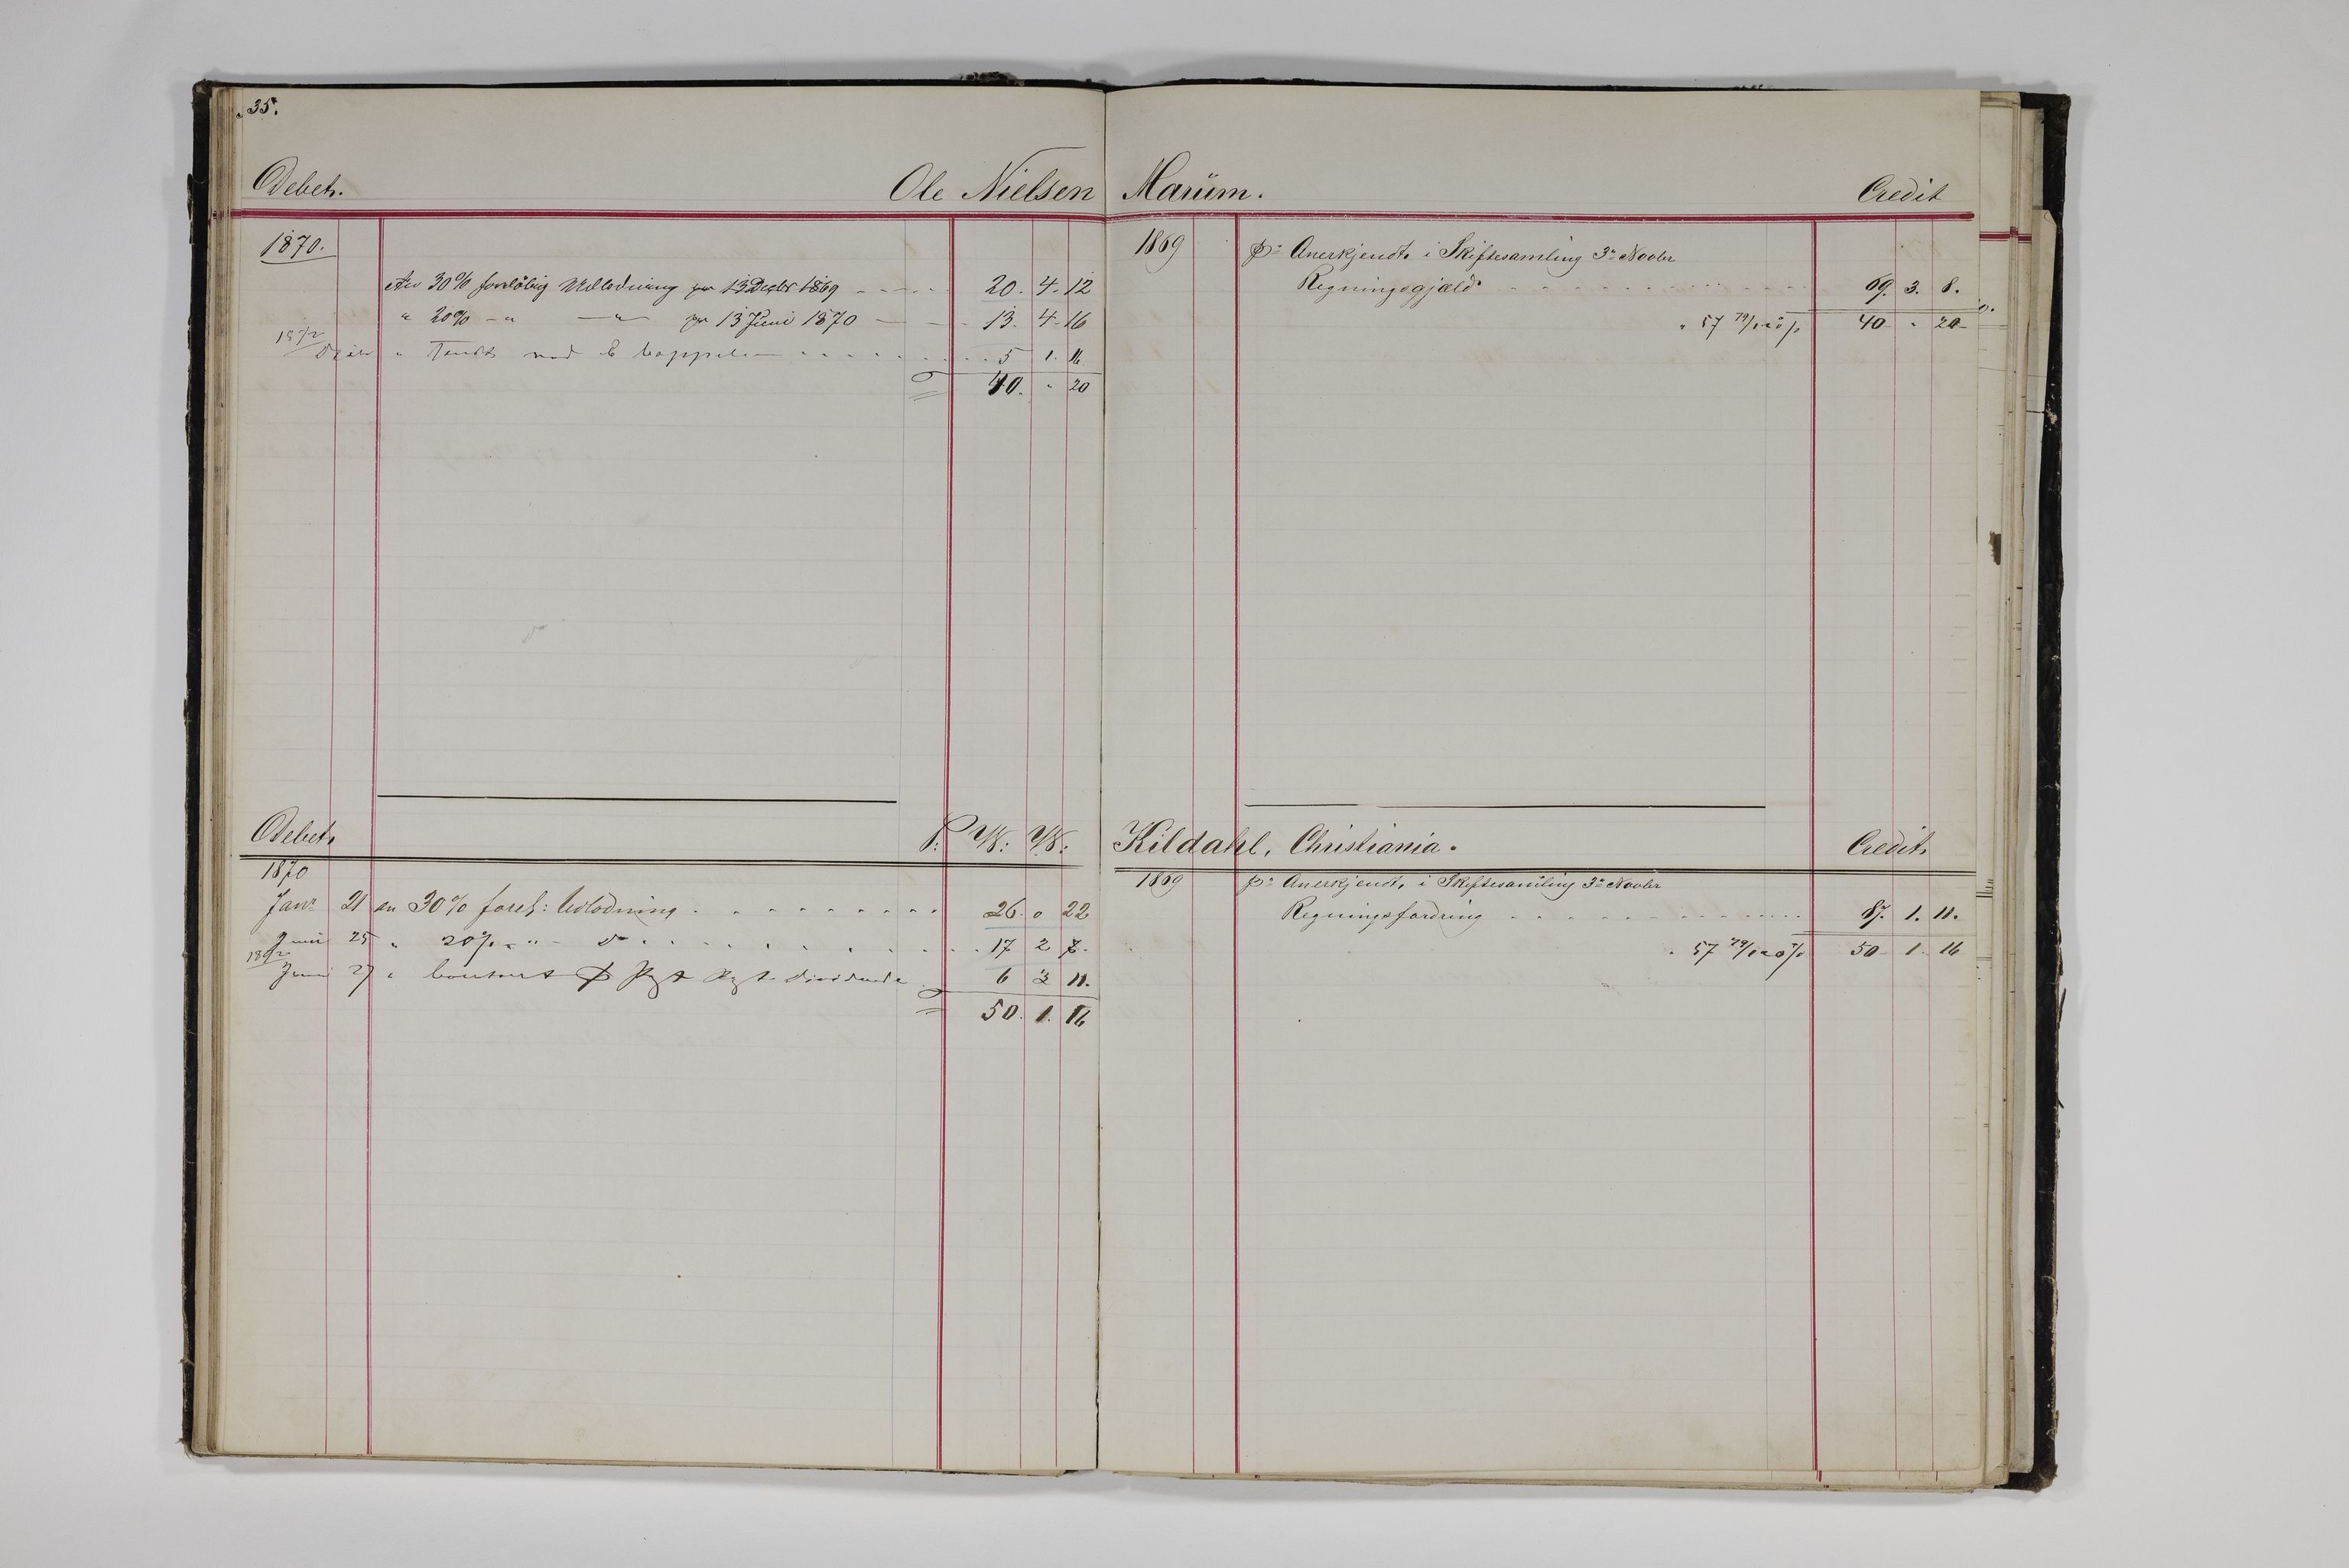 35.
Debet. Ole Nielsen
1870.
An 30% forelöbig Udlodning pr 13 Decbr 1869 20. 4. 12
" 20% - " - " - pr 13 Juni 1870 13. 4. 16
1872
" Sendt med 5 1. 16
40. " 20
Debet. P. W: W:
1870
Janr 21 an 30% forel: Udlodning 26. 0 22
Juni 25 " 20% - " - do 17 2 7.
1872
Juni 27 " Contant Dividende 6 3 11.
50. 1. 16
Marüm. Credit
1869 pr Anerkjendt i Skiftesamling 3die Novbr
Regningsgjæld 69. 3. 8.
" 57 79/100 % 40 " 20
Kildahl, Christiania. Credit.
1869 pr Anerkjendt, i Skiftesamling 3die Novbr
Regningsfordring 87. 1. 11.
" 57 79/100 % 50 1. 16